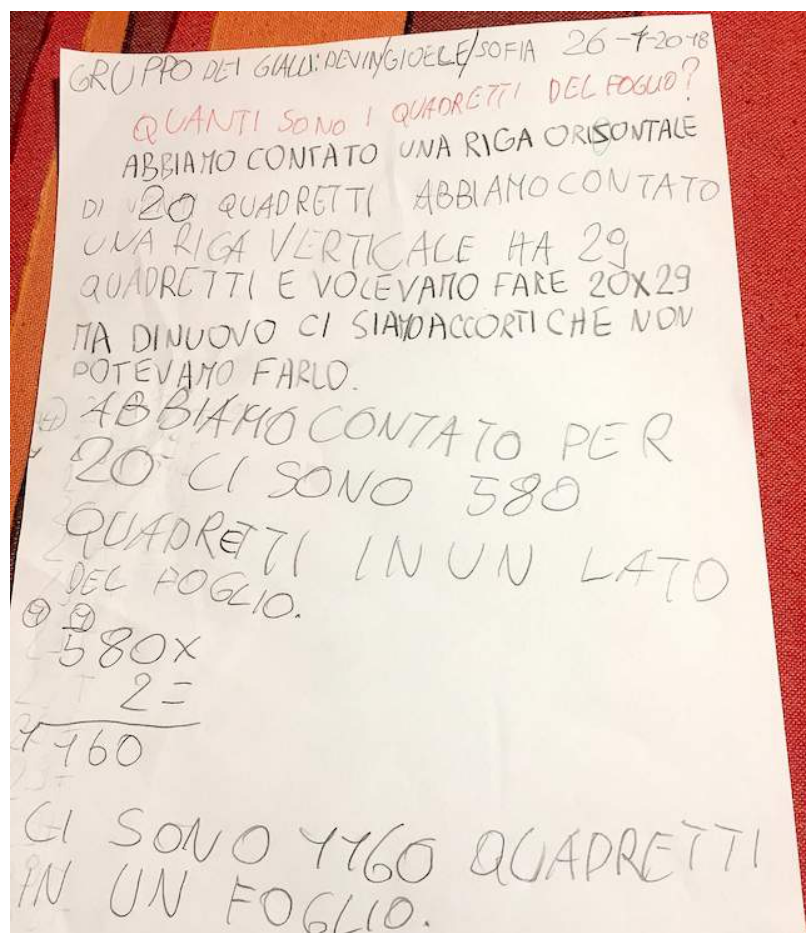 GRUPPO DEI GIALLI: DEVIN/GIOELE/SOFIA 26-1-2018
QUANTI SONO I QUADRETTI DEL FOGLIO?
ABBIAMO CONTATO UNA RIGA ORISONTALE
DI 20 QUADRETTI ABBIAMO CONTATO
UNA RIGA VERTICALE HA 29
QUADRETTI E VOLEVAMO FARE 20X29
MA DINUOVO CI SIAMO ACCORTI CHE NON
POTEVAMO FARLO.
ABBIAMO CONTATO PER
20 CI SONO 580
QUADRETTI IN UN LATO
DEL FOGLIO.
1 1
580X
2=
1160
CI SONO 1160 QUADRETTI
IN UN FOGLIO.